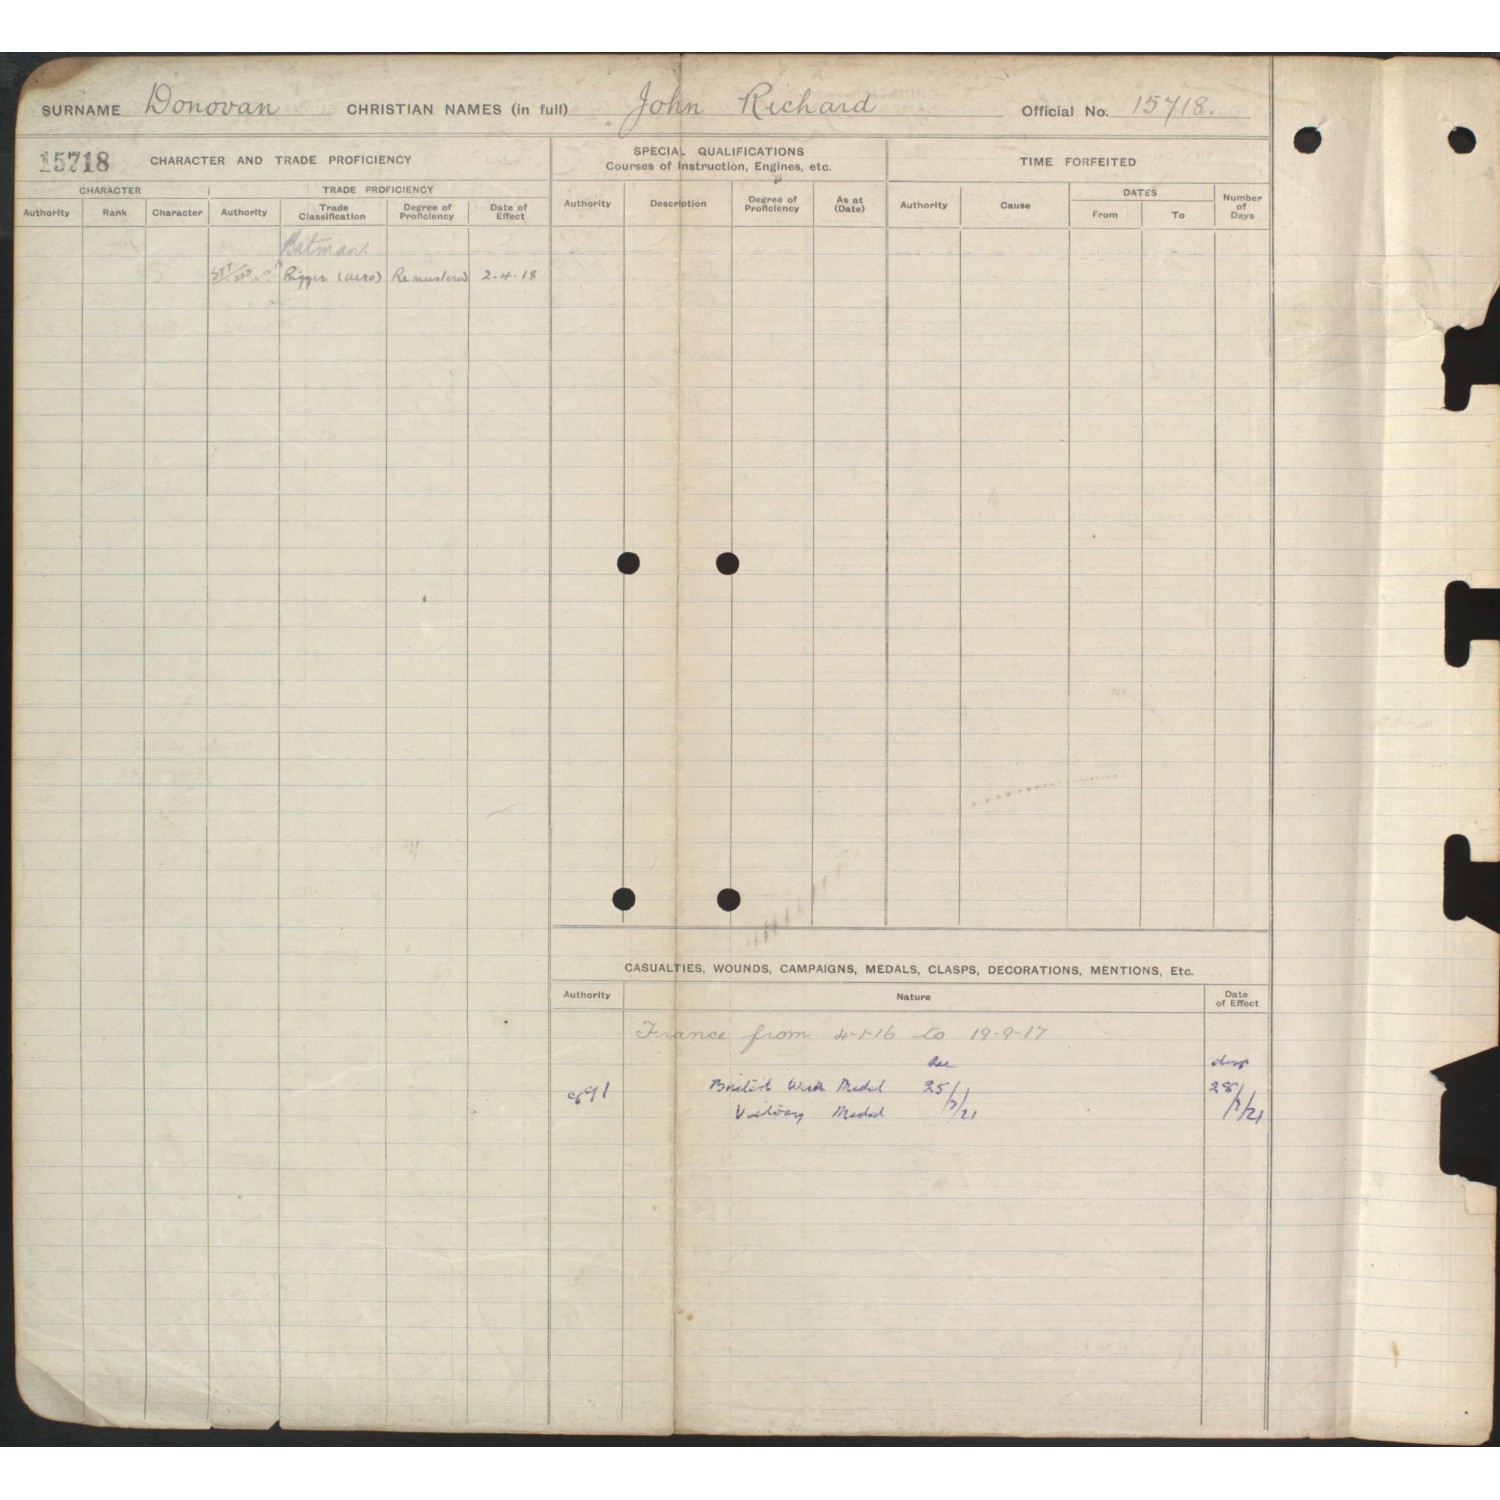 SURNAME Donovan CHRISTIAN NAMES (in full) John Richard Official No. 15718.
15718 CHARACTER AND TRADE PROFICIENCY
CHARACTER TRADE PROFICIENCY
Authority Rank Character Authority Trade Classification Degree of Proficiency Date of Effect
Batman
Rigger (aero) Remustered 2-4-18
SPECIAL QUALIFICATIONS
Courses of Instruction, Engines, etc.
Authority Description Degree of Proficiency As at (Date)
TIME FORFEITED
Authority Cause DATES From To Number of Days
CASUALTIES, WOUNDS, CAMPAIGNS, MEDALS, CLASPS, DECORATIONS, MENTIONS, Etc.
Authority Nature Date of Effect
France from 4-1-16 to 19-9-17
Rec desp
British War Medal 25/7/21 28/7/21
Victory Medal